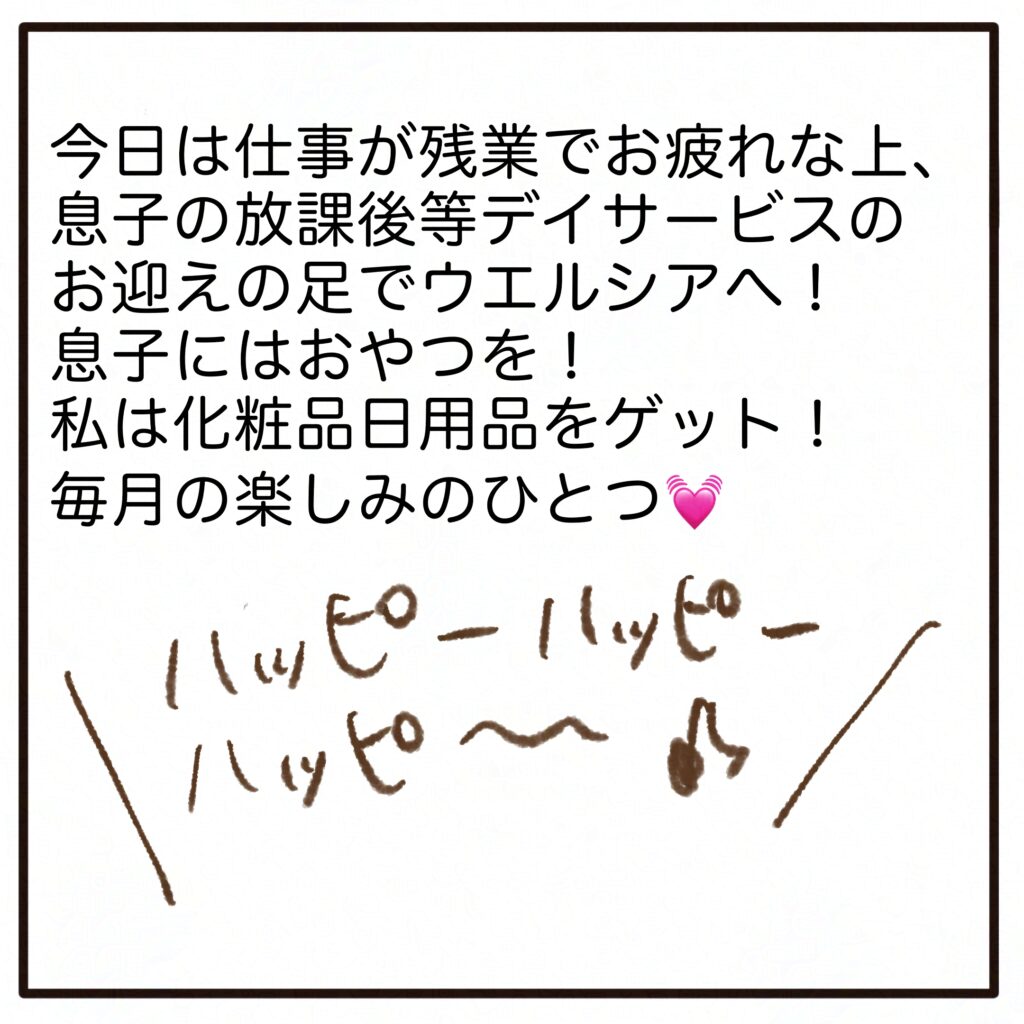 今日は仕事が残業でお疲れな上、
息子の放課後等デイサービスの
お迎えの足でウエルシアへ！
息子にはおやつを！
私は化粧品日用品をゲット！
毎月の楽しみのひとつ💓
ハッピーハッピー
ハッピ〜〜♪